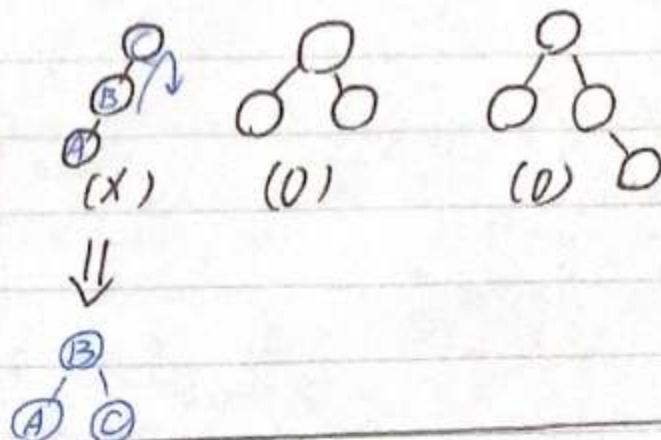 B
A
(X) (O) (O)
B
A C